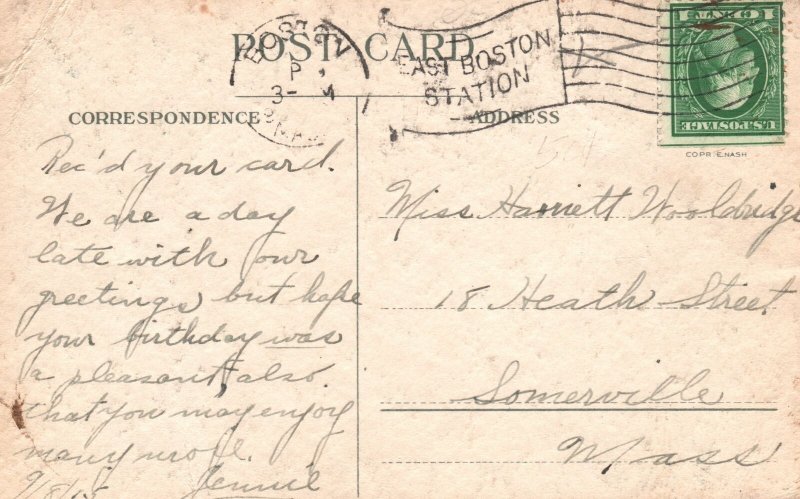 POST CARD
BOSTON
P
3-
M
MASS.
EAST BOSTON
STATION
1 CENT 1
U.S. POSTAGE
COPR. E. NASH
CORRESPONDENCE
Rec'd your card.
We are a day
late with our
greetings, but hope
your birthday was
a pleasant, also
that you may enjoy
many more.
9/8/15 Jennie
ADDRESS
Miss Harriett Wooldridge
18 Heath Street
Somerville
Mass